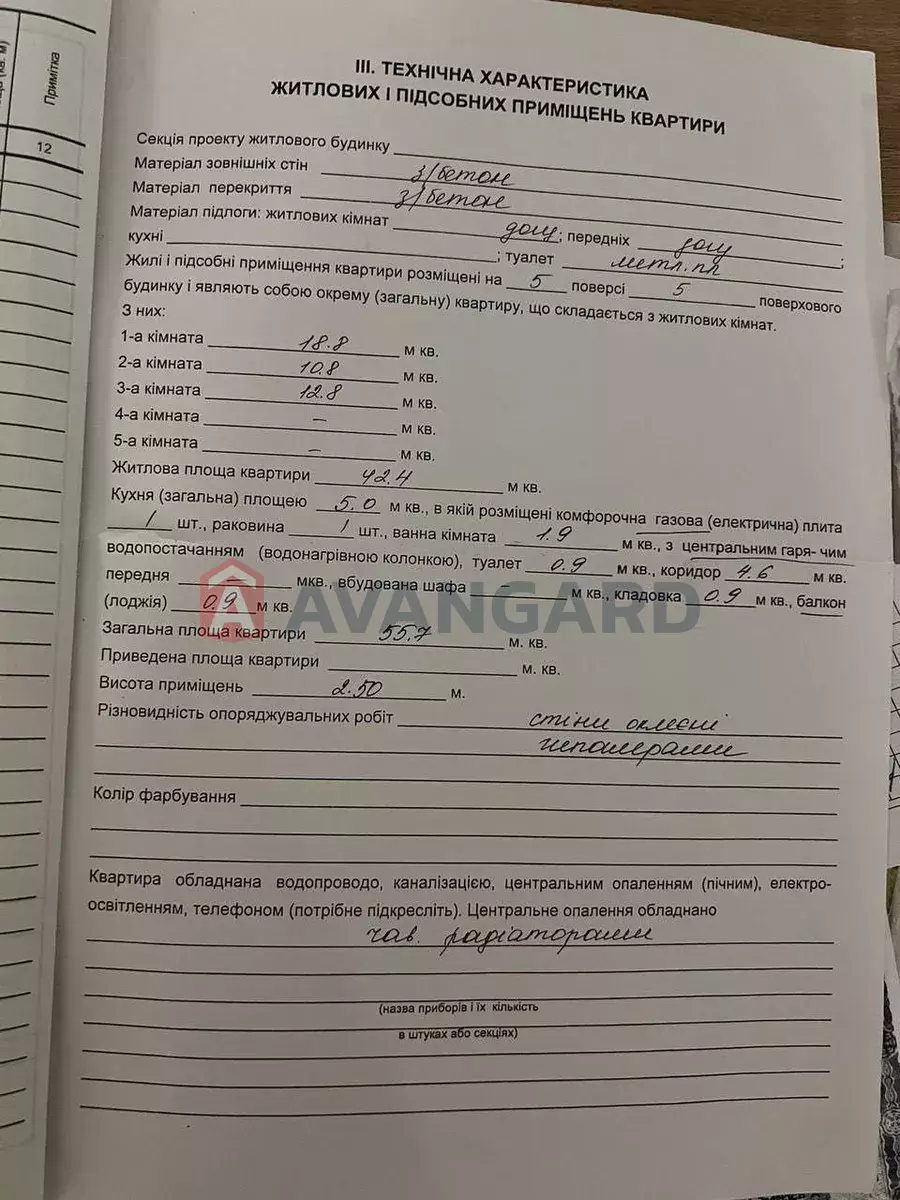 Примітка
12
III. ТЕХНІЧНА ХАРАКТЕРИСТИКА
ЖИТЛОВИХ І ПІДСОБНИХ ПРИМІЩЕНЬ КВАРТИРИ
Секція проекту житлового будинку
Матеріал зовнішніх стін з/бетон
Матеріал перекриття з/бетон
Матеріал підлоги: житлових кімнат дощ; передніх дощ;
кухні ; туалет метл.пл
Жилі і підсобні приміщення квартири розміщені на 5 поверсі 5 поверхового
будинку і являють собою окрему (загальну) квартиру, що складається з житлових кімнат.
З них:
1-а кімната 18.8 м кв.
2-а кімната 10.8 м кв.
3-а кімната 12.8 м кв.
4-а кімната – м кв.
5-а кімната – м кв.
Житлова площа квартири 42.4 м кв.
Кухня (загальна) площею 5.0 м кв., в якій розміщені комфорочна газова (електрична) плита
1 шт., раковина 1 шт., ванна кімната 1.9 м кв., з центральним гаря- чим
водопостачанням (водонагрівною колонкою), туалет 0.9 м кв., коридор 4.6 м кв.
передня мкв., вбудована шафа м кв., кладовка 0.9 м кв., балкон
(лоджія) 0.9 м кв.
AVANGARD
Загальна площа квартири 55.7 м. кв.
Приведена площа квартири м. кв.
Висота приміщень 2.50 м.
Різновидність опоряджувальних робіт стіни оклеєні
шпалерами
Колір фарбування
Квартира обладнана водопроводо, каналізацією, центральним опаленням (пічним), електро-
освітленням, телефоном (потрібне підкресліть). Центральне опалення обладнано
чав. радіаторами
(назва приборів і їх кількість
в штуках або секціях)